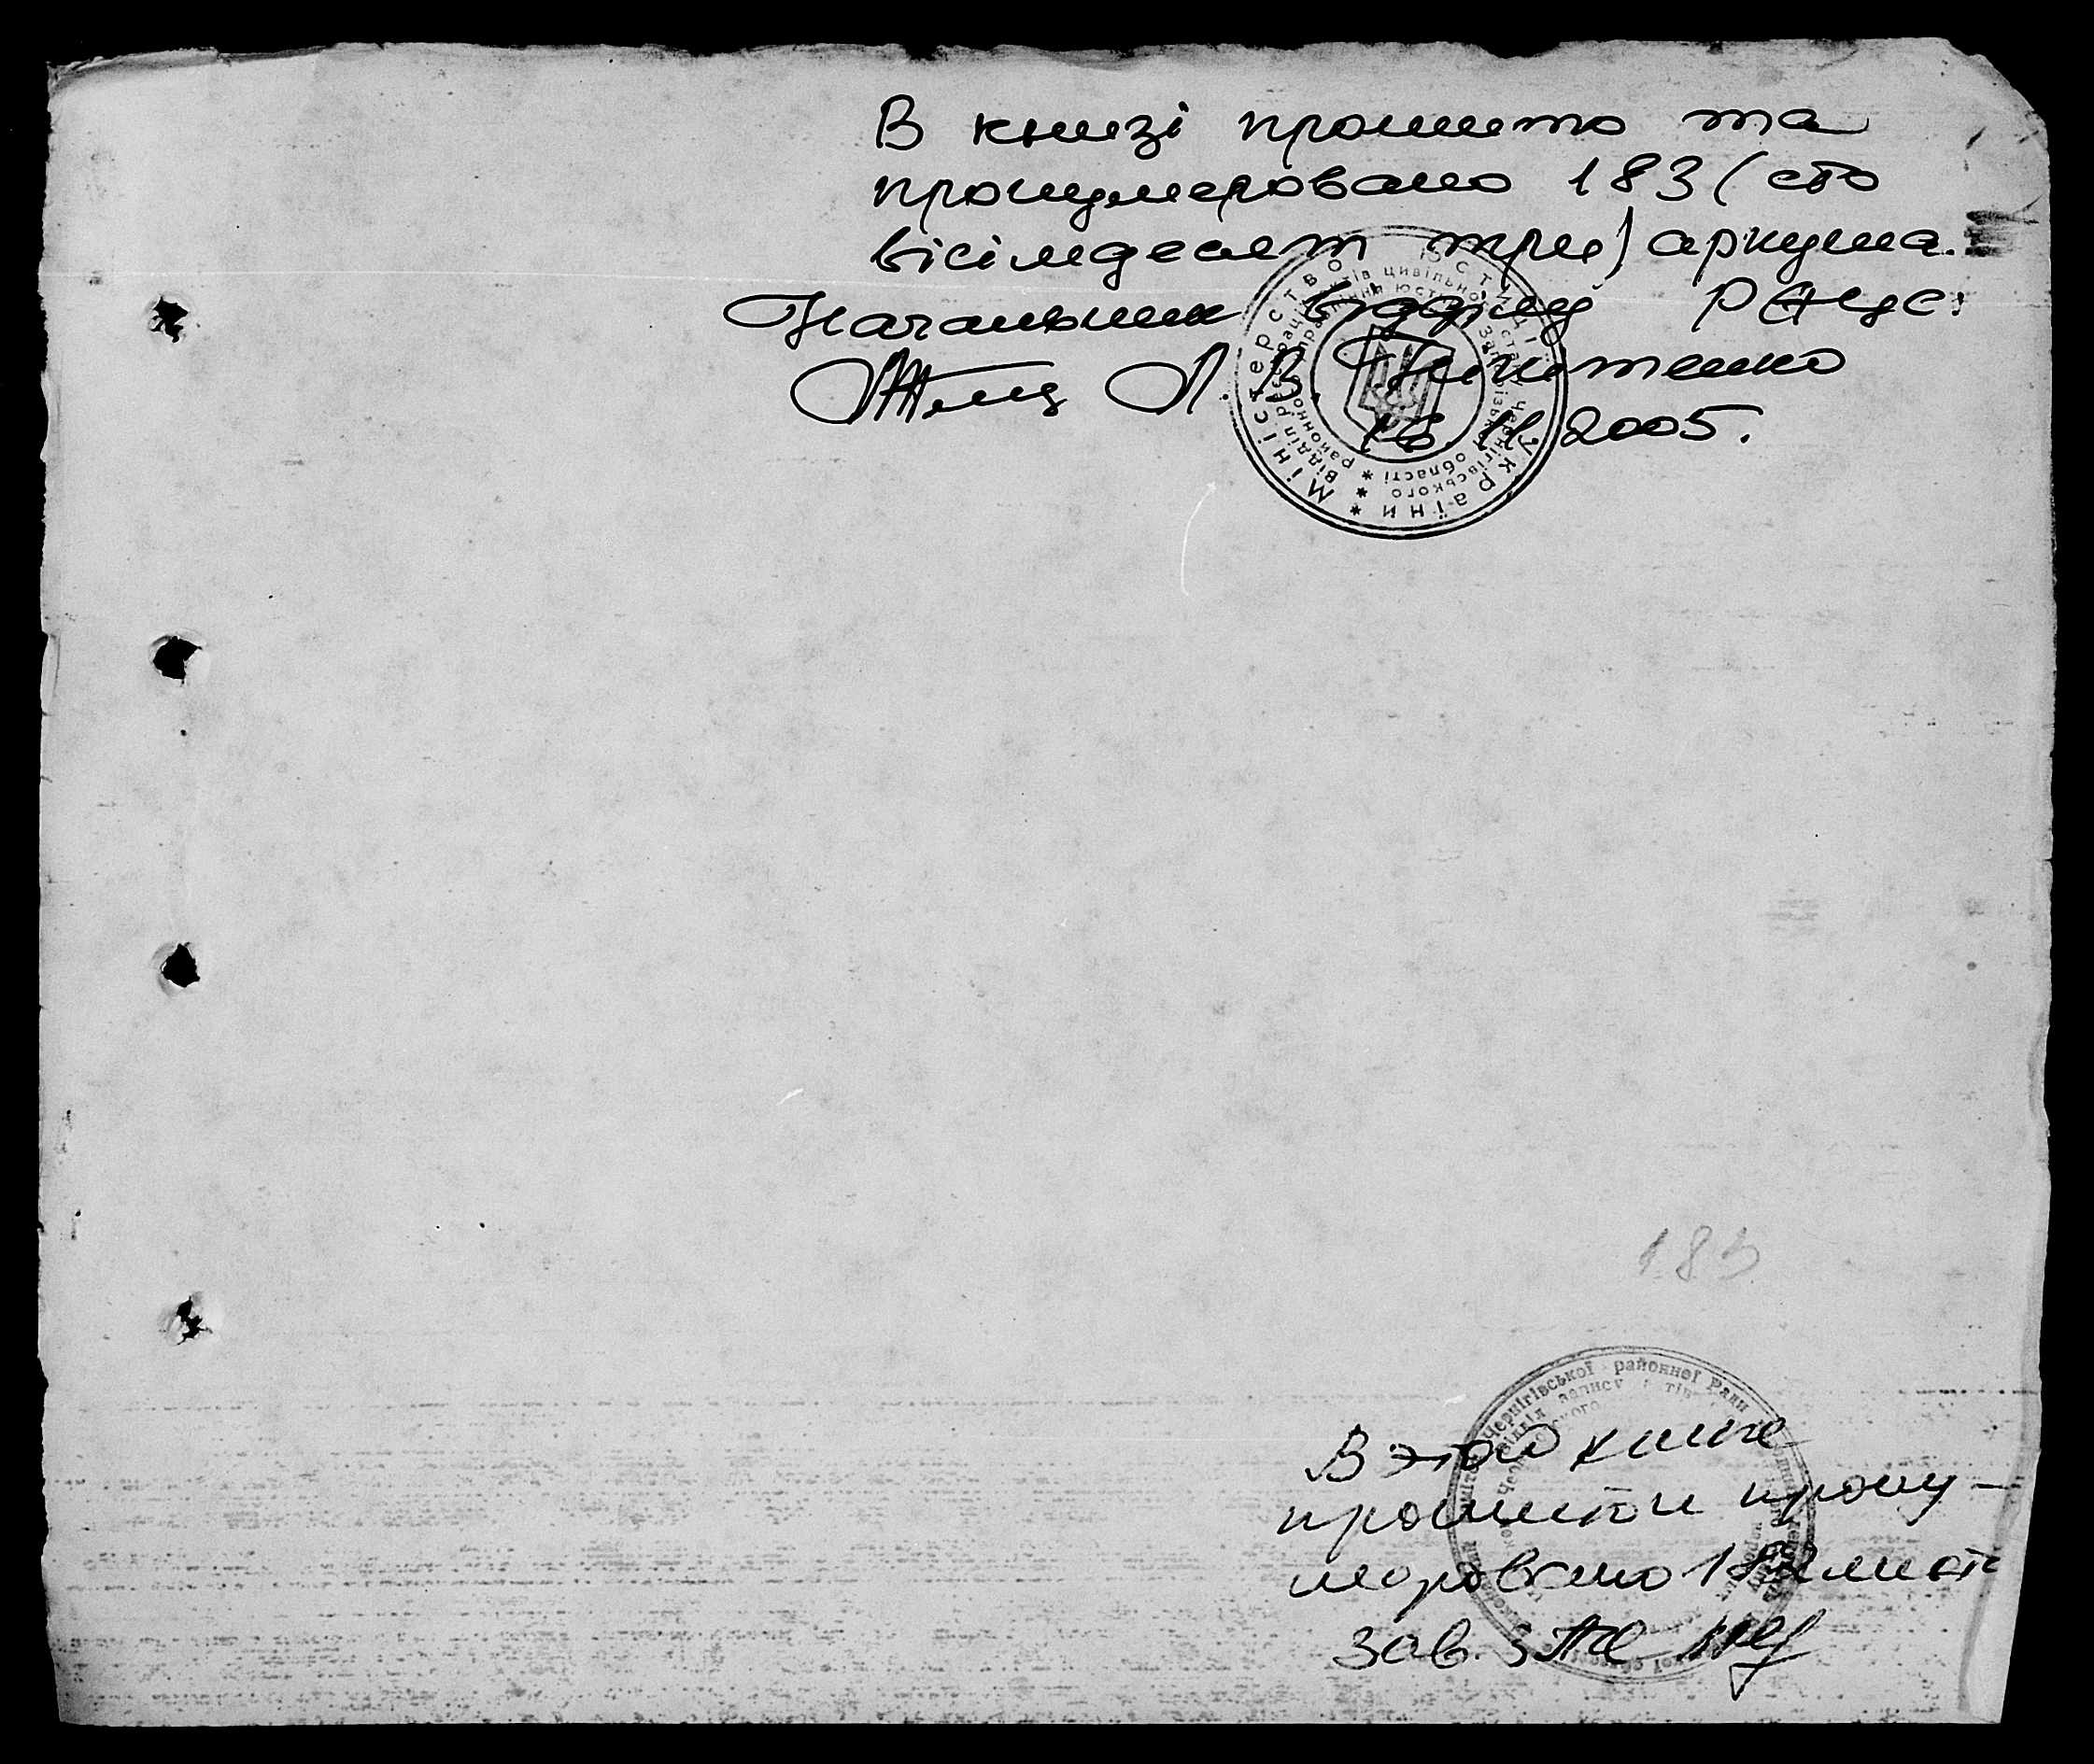 В книзі прошито та
пронумеровано 183 (сто
вісімдесят три) аркуша.
Начальник відділу РАЦС:
Л. В. Никитенко
16.11.2005.
Міністерство юстиції України
Відділ реєстрації актів цивільного стану Чернігівського
районного управління юстиції Запорізької області
183
Чернігівської районної Ради
відділ запису
В этой книге
прошито и прону-
меровано 182 листа
Зав. ЗАГС